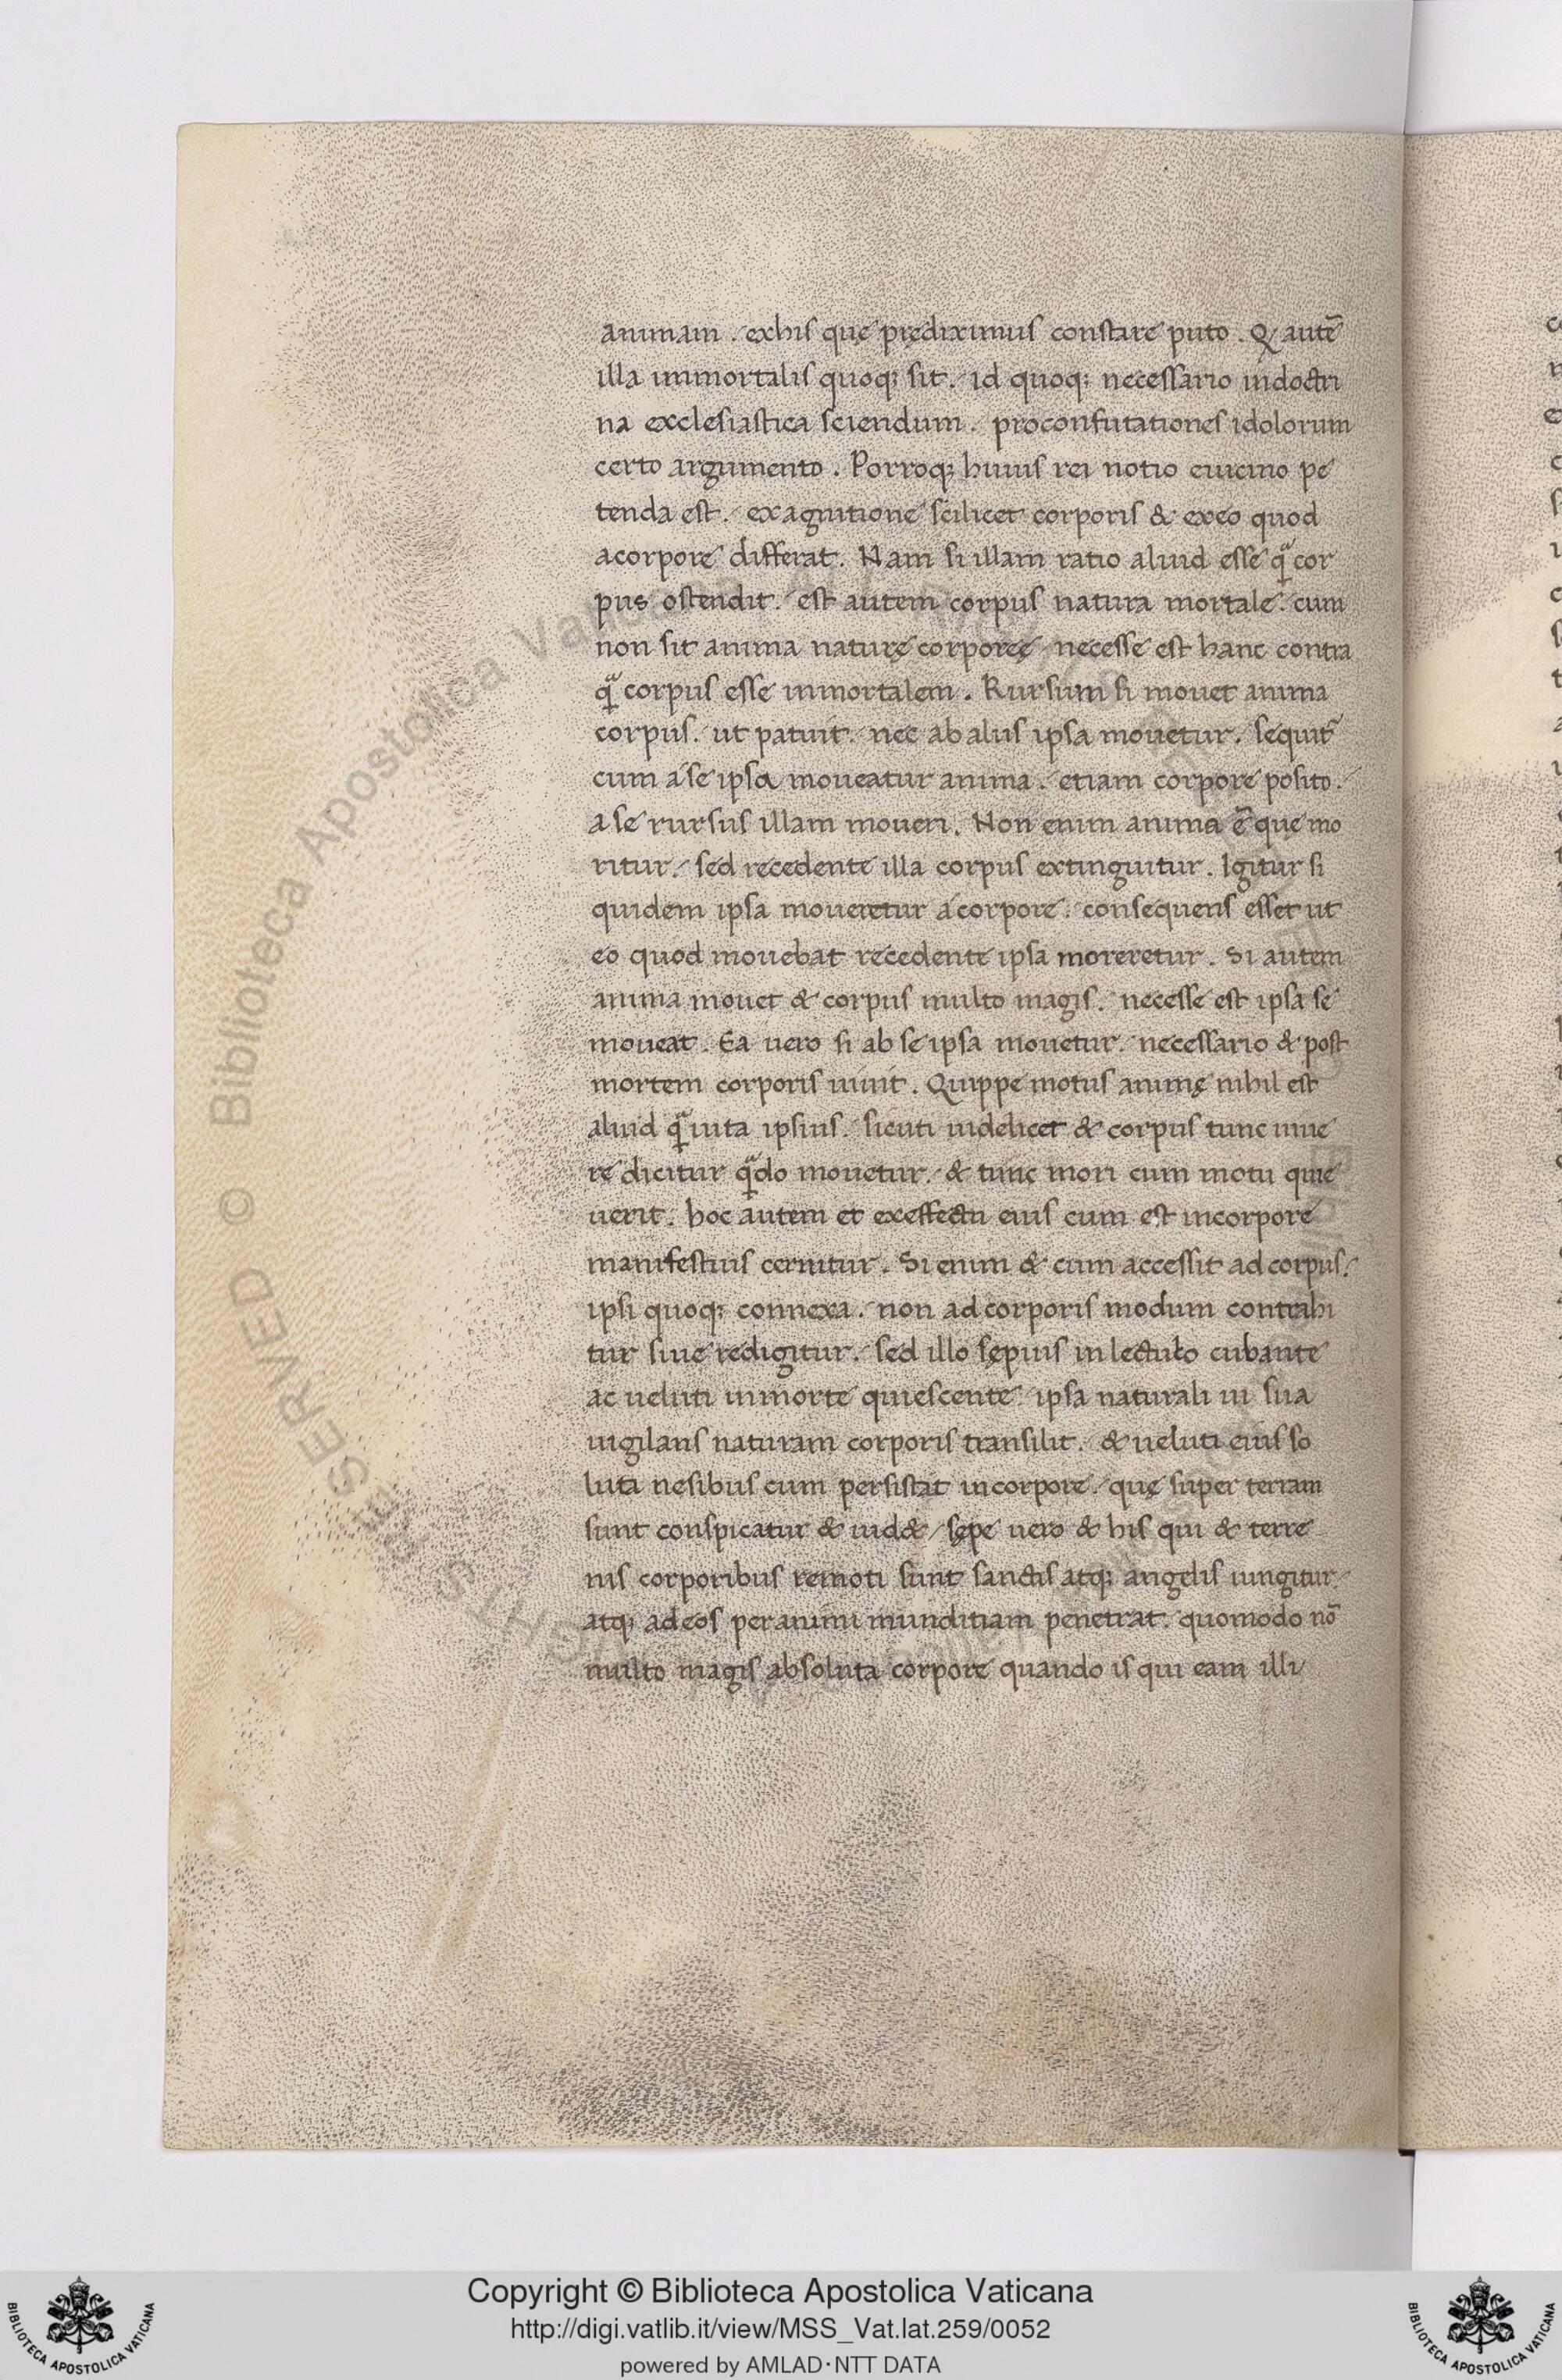 animam. exhis quę prędiximus constare puto. Q autē
illa immortalis quoq; sit. id quoq; necessario indoctri
na exclesiastica sciendum. proconfutationes idolorum
certo argumento. Porroq; huius rei notio euicino pe
tenda est. exagnitione scilicet corporis & exeo quod
acorpore differat. Nam si illam ratio aliud esse q̃ cor
pus ostendit. est autem corpus natura mortale. cum
non sit anima naturę corporeę necesse est hanc contra
q̃ corpus esse inmortalem. Rursum si mouet anima
corpus. ut patuit. nec ab aliis ipsa mouetur. sequit̃
cum a se ipsa moueatur anima. etiam corpore posito.
a se rursus illam moueri. Non enim anima ē quę mo
ritur. sed recedente illa corpus extinguitur. Igitur si
quidem ipsa moueretur a corpore. consequens esset ut
eo quod mouebat recedente ipsa moreretur. Si autem
anima mouet & corpus multo magis. necesse est ipsa se
moueat. Ea uero si ab se ipsa mouetur. necessario & post
mortem corporis uiuit. Quippe motus animę nihil est
aliud q̃ uita ipsius. sicuti uidelicet & corpus tunc uiue
re dicitur q̃do mouetur. & tunc mori cum motu quie
uerit. hoc autem et exeffectu eius cum est incorpore
manifestius cernitur. Si enim & cum accessit ad corpus.
ipsi quoq; connexa. non ad corporis modum contrahi
tur siue redigitur. sed illo sępius in lectulo cubante
ac ueluti inmorte quiescente. ipsa naturali ui sua
uigilans naturam corporis transilit. & ueluti eius so
luta nesibus cum persistat incorpore. quę super terram
sunt conspicatur & uid& sępe uero & his qui & terre
nis corporibus remoti sunt sanctis atq; angelis iungitur
atq; ad eos per animi munditiam penetrat. quomodo nō
multo magis absoluta corpore quando is qui eam illi
Copyright © Biblioteca Apostolica Vaticana
http://digi.vatlib.it/view/MSS_Vat.lat.259/0052
powered by AMLAD·NTT DATA